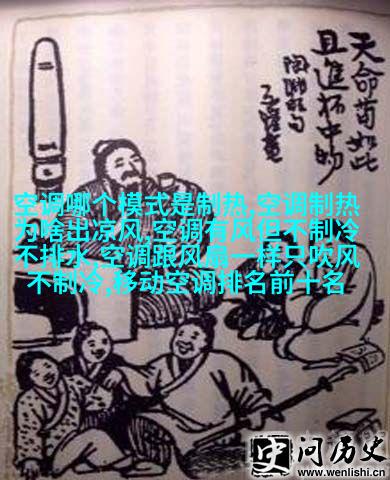 天命苟如此
且進杯中物
陶淵明句
空调哪个模式是制热,空调制热
为啥出凉风,空调有风但不制冷
不排水,空调跟风扇一样只吹风
不制冷,移动空调排名前十名
史问历史
www.wenlishi.cn